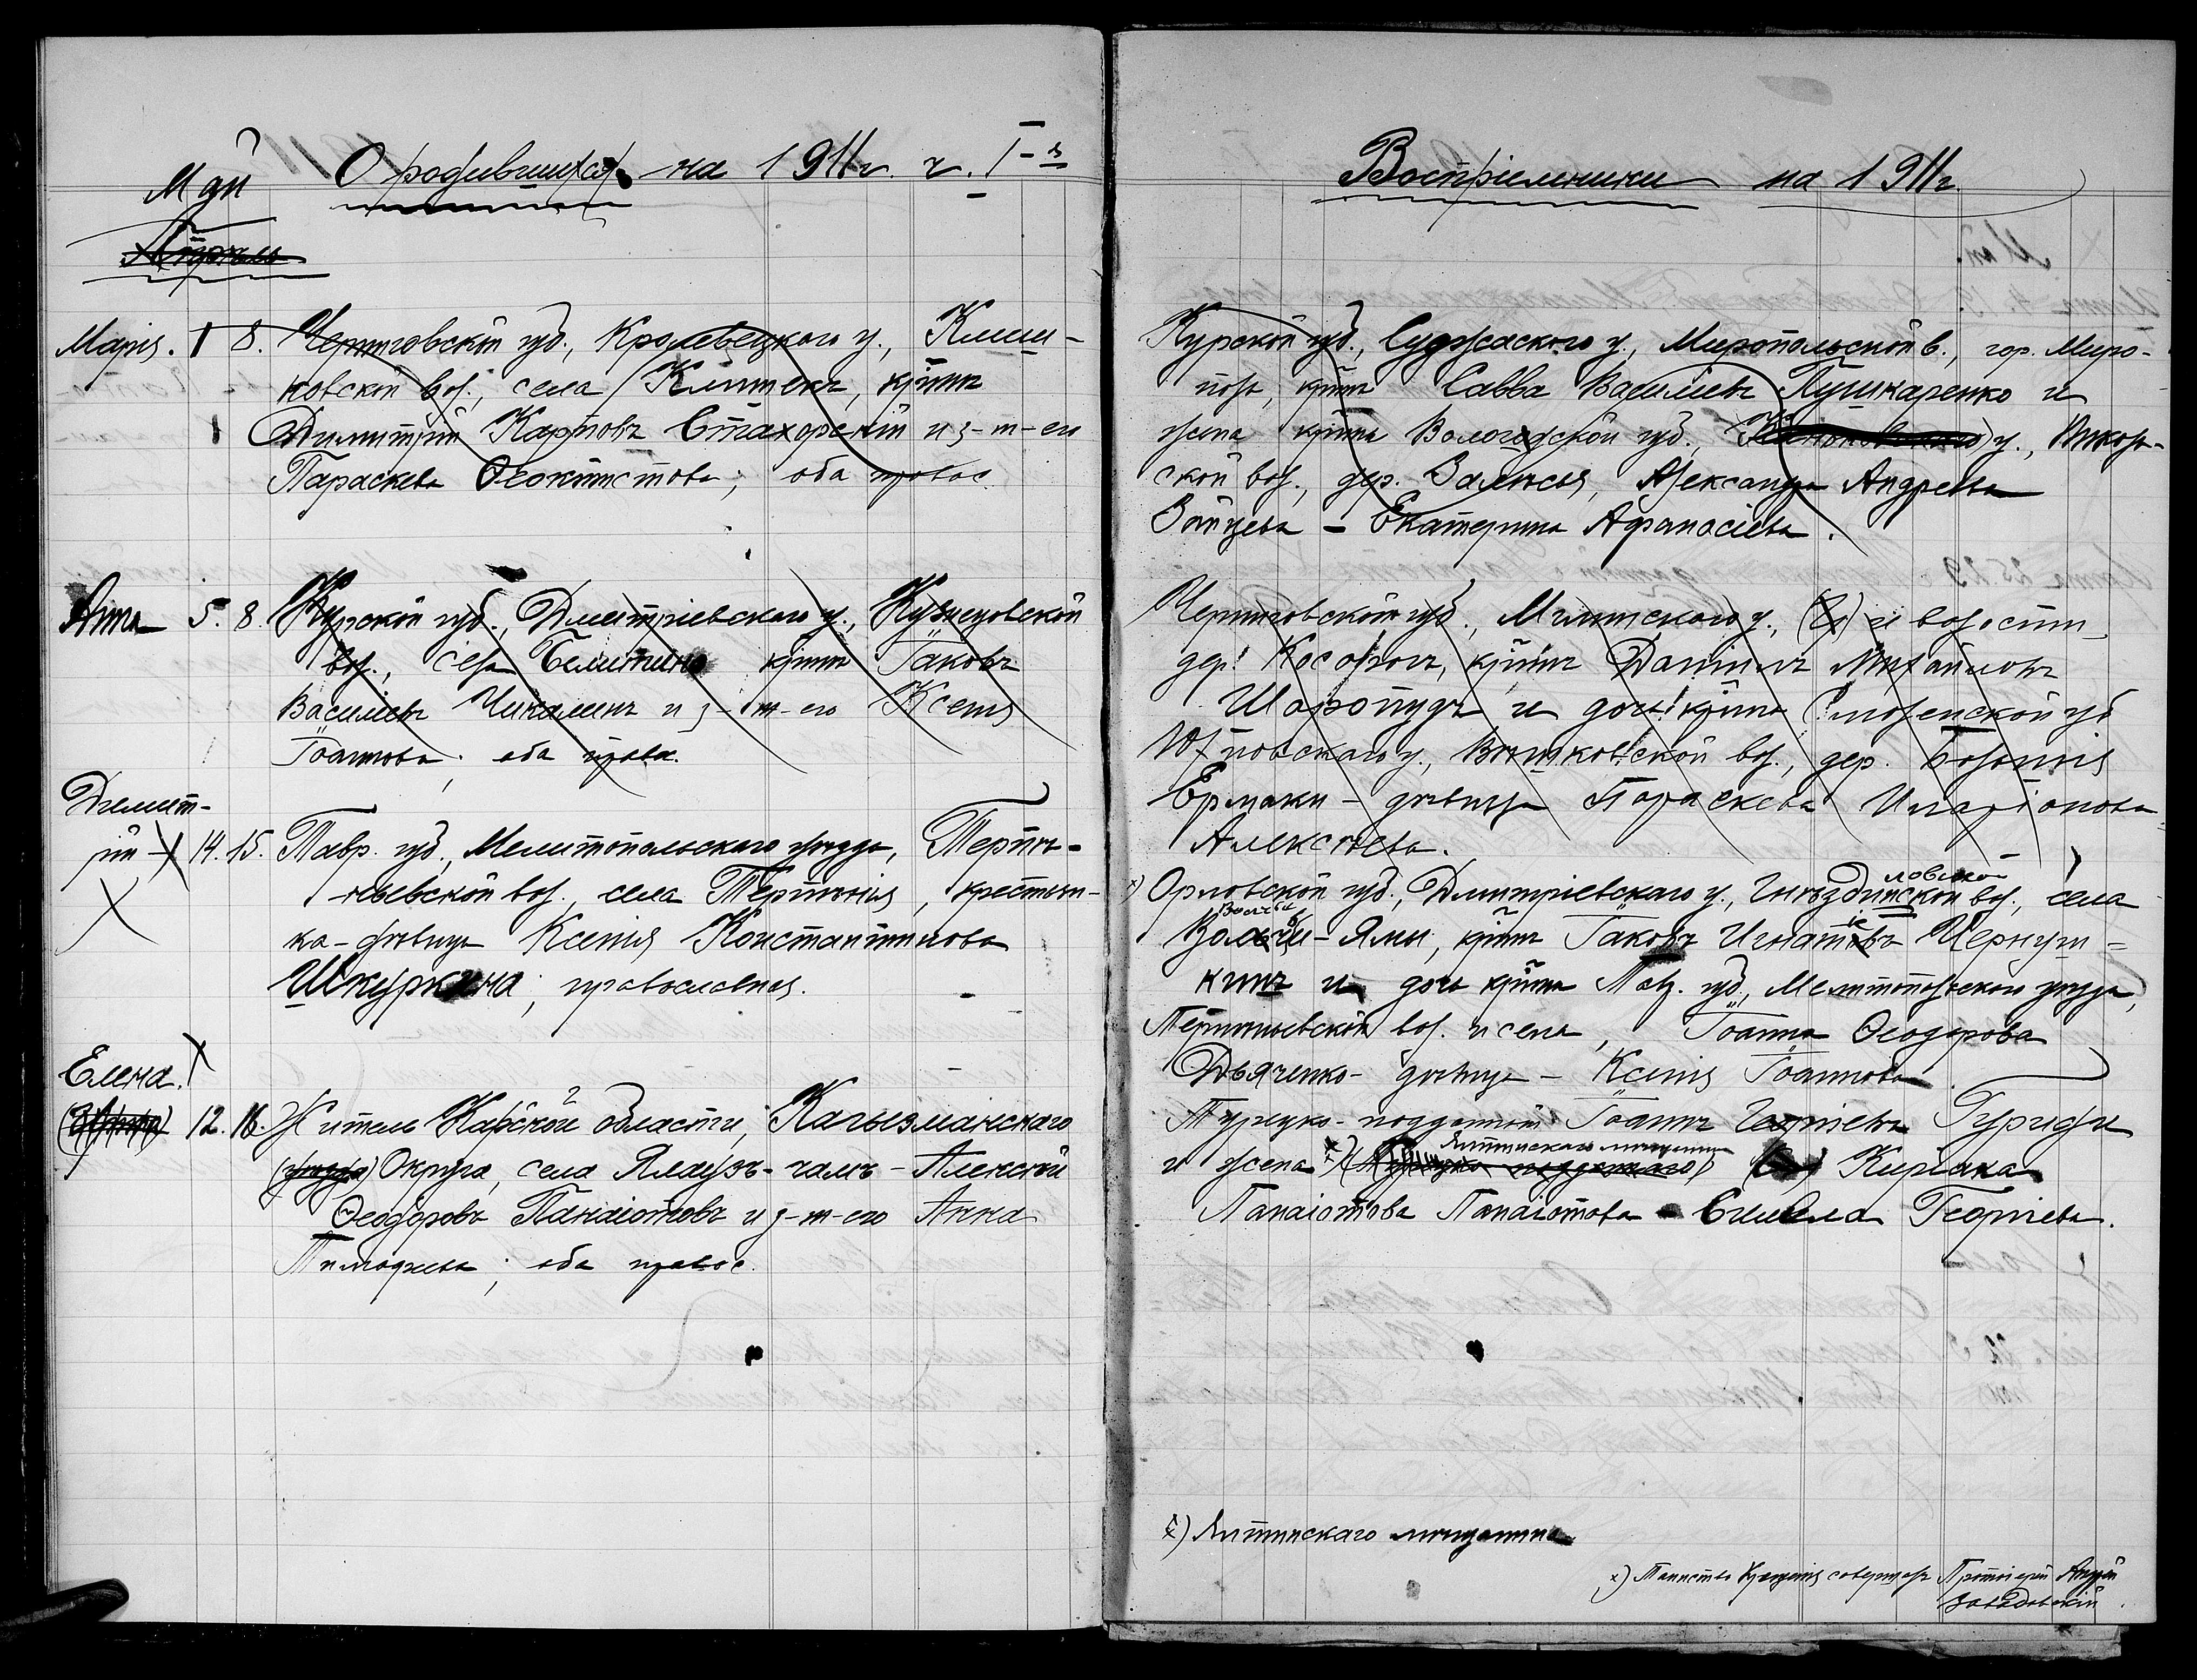 Май
О родившихся на 1911 г. ч. I-я
Апрель
Марія. 1 8. Черниговской губ., Кролевецкаго у., Клиш-
ковской вол., села Клишекъ, крнинъ
1 Димитрій Карповъ Стахорскій и з-ж-его
Параскева Ѳеоктистова; оба правос.
Анна 5. 8. Курской губ., Дмитріевскаго у., Кузнецовской
вол., села Белитино крнинъ Іаковъ
Василіевъ Чикалинъ и з-ж-его Ксенія
Іоаннова; оба права.
Димит-
рій 14. 15. Тавр. губ., Мелитопольскаго уѣзда, Терпѣ-
ньевской вол., села Терпѣнія, крестьян-
ка-дѣвица Ксенія Константинова
Шкуркина; православная.
Елена.
12. 16. Житель Карской области, Кагызманскаго
(уѣзда) Округа, села Ялаузъ-чамъ - Алексѣй
Ѳеодоровъ Панаіотовъ и з-ж-его Анна
Тимоѳеева; оба правос.
Воспріемники на 1911 г.
Курской губ., Суджаскаго у., Миропольской в., гор. Миро-
поль, крнинъ Савва Василіевъ Пушкаренко и
жена крнина Вологодской губ., у.,
ской вол., дер. Александра Андреева
Зайцева - Екатерина Аѳанасіева.
Черниговской губ., Мглинскаго у., и волости,
дер. Косо Даніилъ Михайловъ
Шаропудъ и дочь крнина Смоленской губ
Юхновскаго у., вол., дер.
Ермаки - дѣвица Параскева Иларіонова
Алексѣева.
ловской
х) Орловской губ., Дмитріевскаго у., Гнѣздинской вол., села
Волчьи
Волчьи-Ямы, крнинъ Іаковъ Игнатіевъ Чернуш=
кинъ и дочь крнина Тавр. губ., Мелитопольскаго уѣзда,
Терпѣньевской вол. и села, Іоанна Ѳеодорова
Дьяченко - дѣвица - Ксенія Іоаннова.
Турецко-подданный Іоаннъ Георгіевъ Гуриди
Ялтинскаго мѣщанина
и жена х) (Турецко подданнаго) Киріака
Панаіотова Панаіотова - Симела Георгіева.
х) Ялтинскаго мѣщанина
х) Таинство Крещенія совершалъ Протоіерей Андрей
Завадовскій.